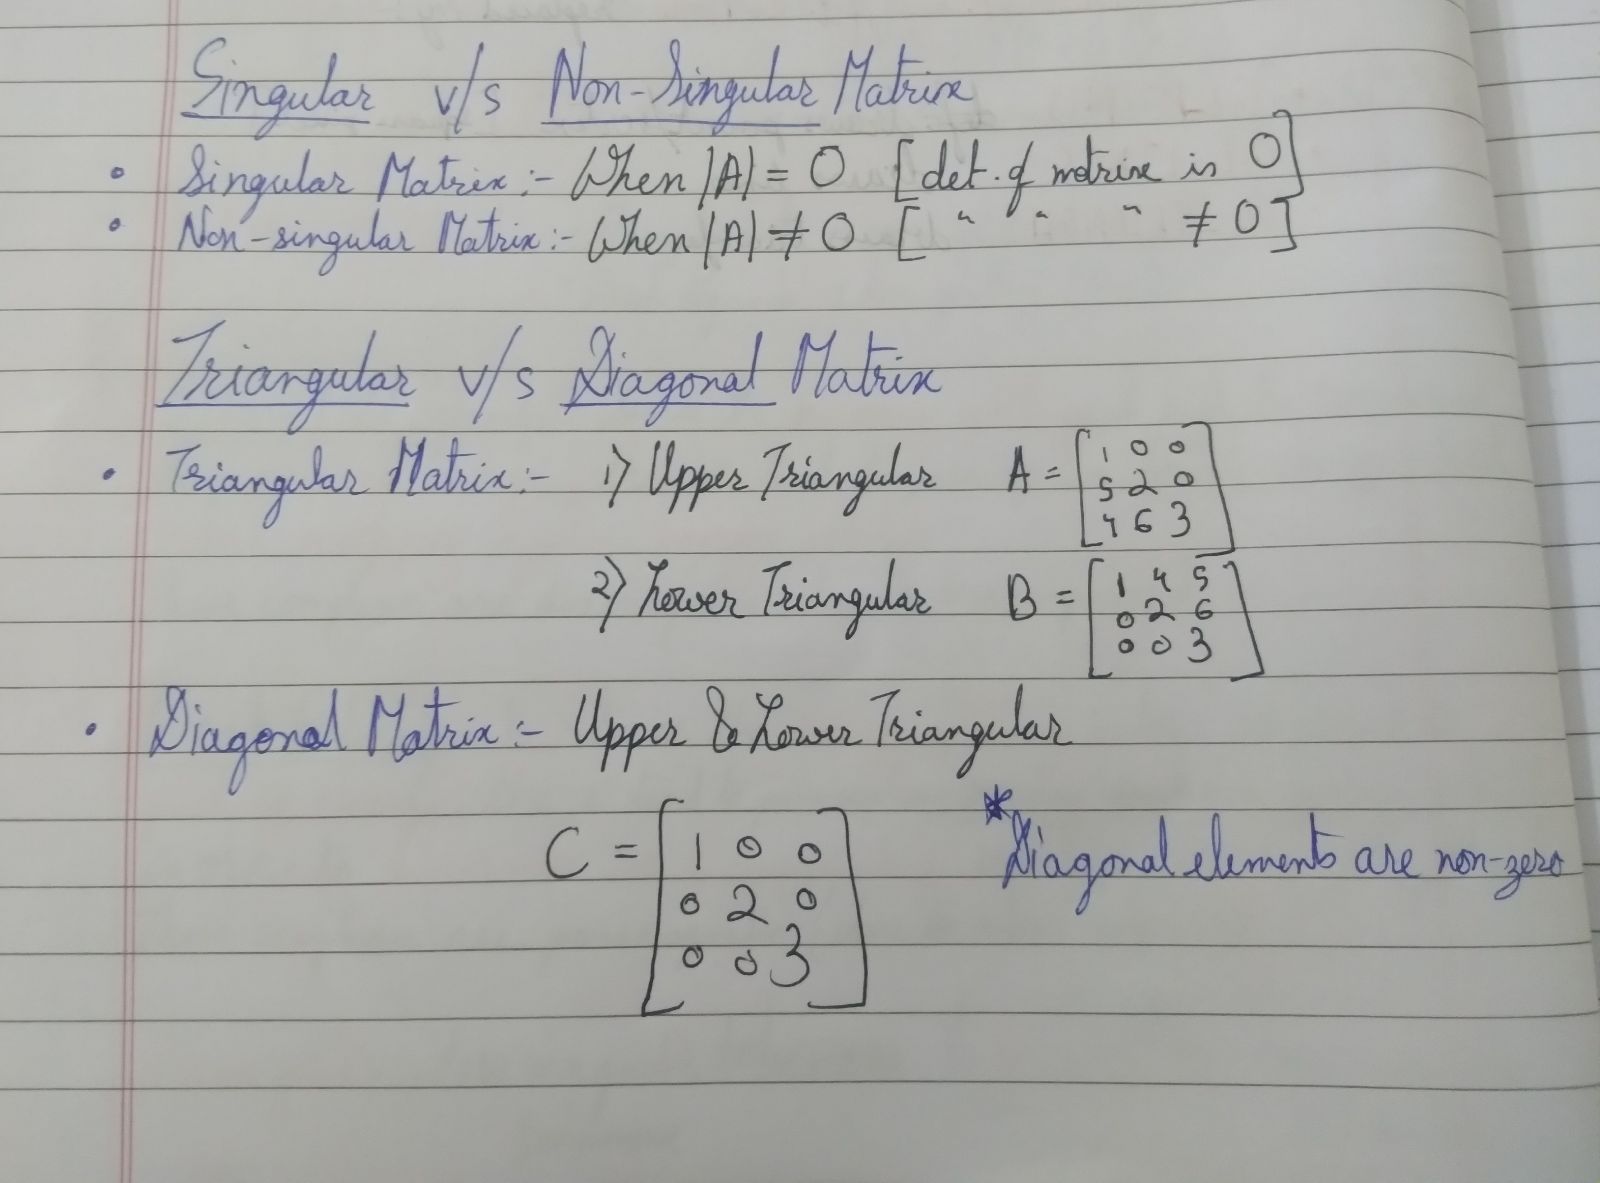 Singular v/s Non-Singular Matrix
• Singular Matrix:- When |A| = 0 [det. of matrix is 0]
• Non-singular Matrix:- When |A| ≠ 0 [ " " " ≠ 0]
Triangular v/s Diagonal Matrix
• Triangular Matrix:- 1) Upper Triangular A = [1 0 0
5 2 0
4 6 3]
2) Lower Triangular B = [1 4 5
0 2 6
0 0 3]
• Diagonal Matrix:- Upper & Lower Triangular
C = [1 0 0
0 2 0
0 0 3]
* Diagonal elements are non-zero